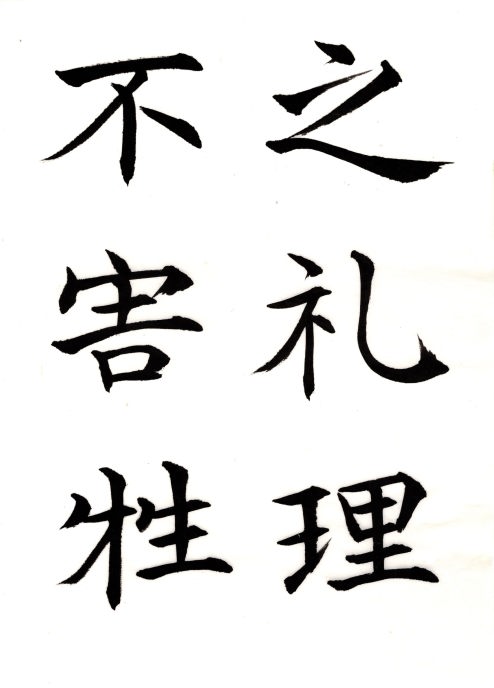 之礼理
不害牲